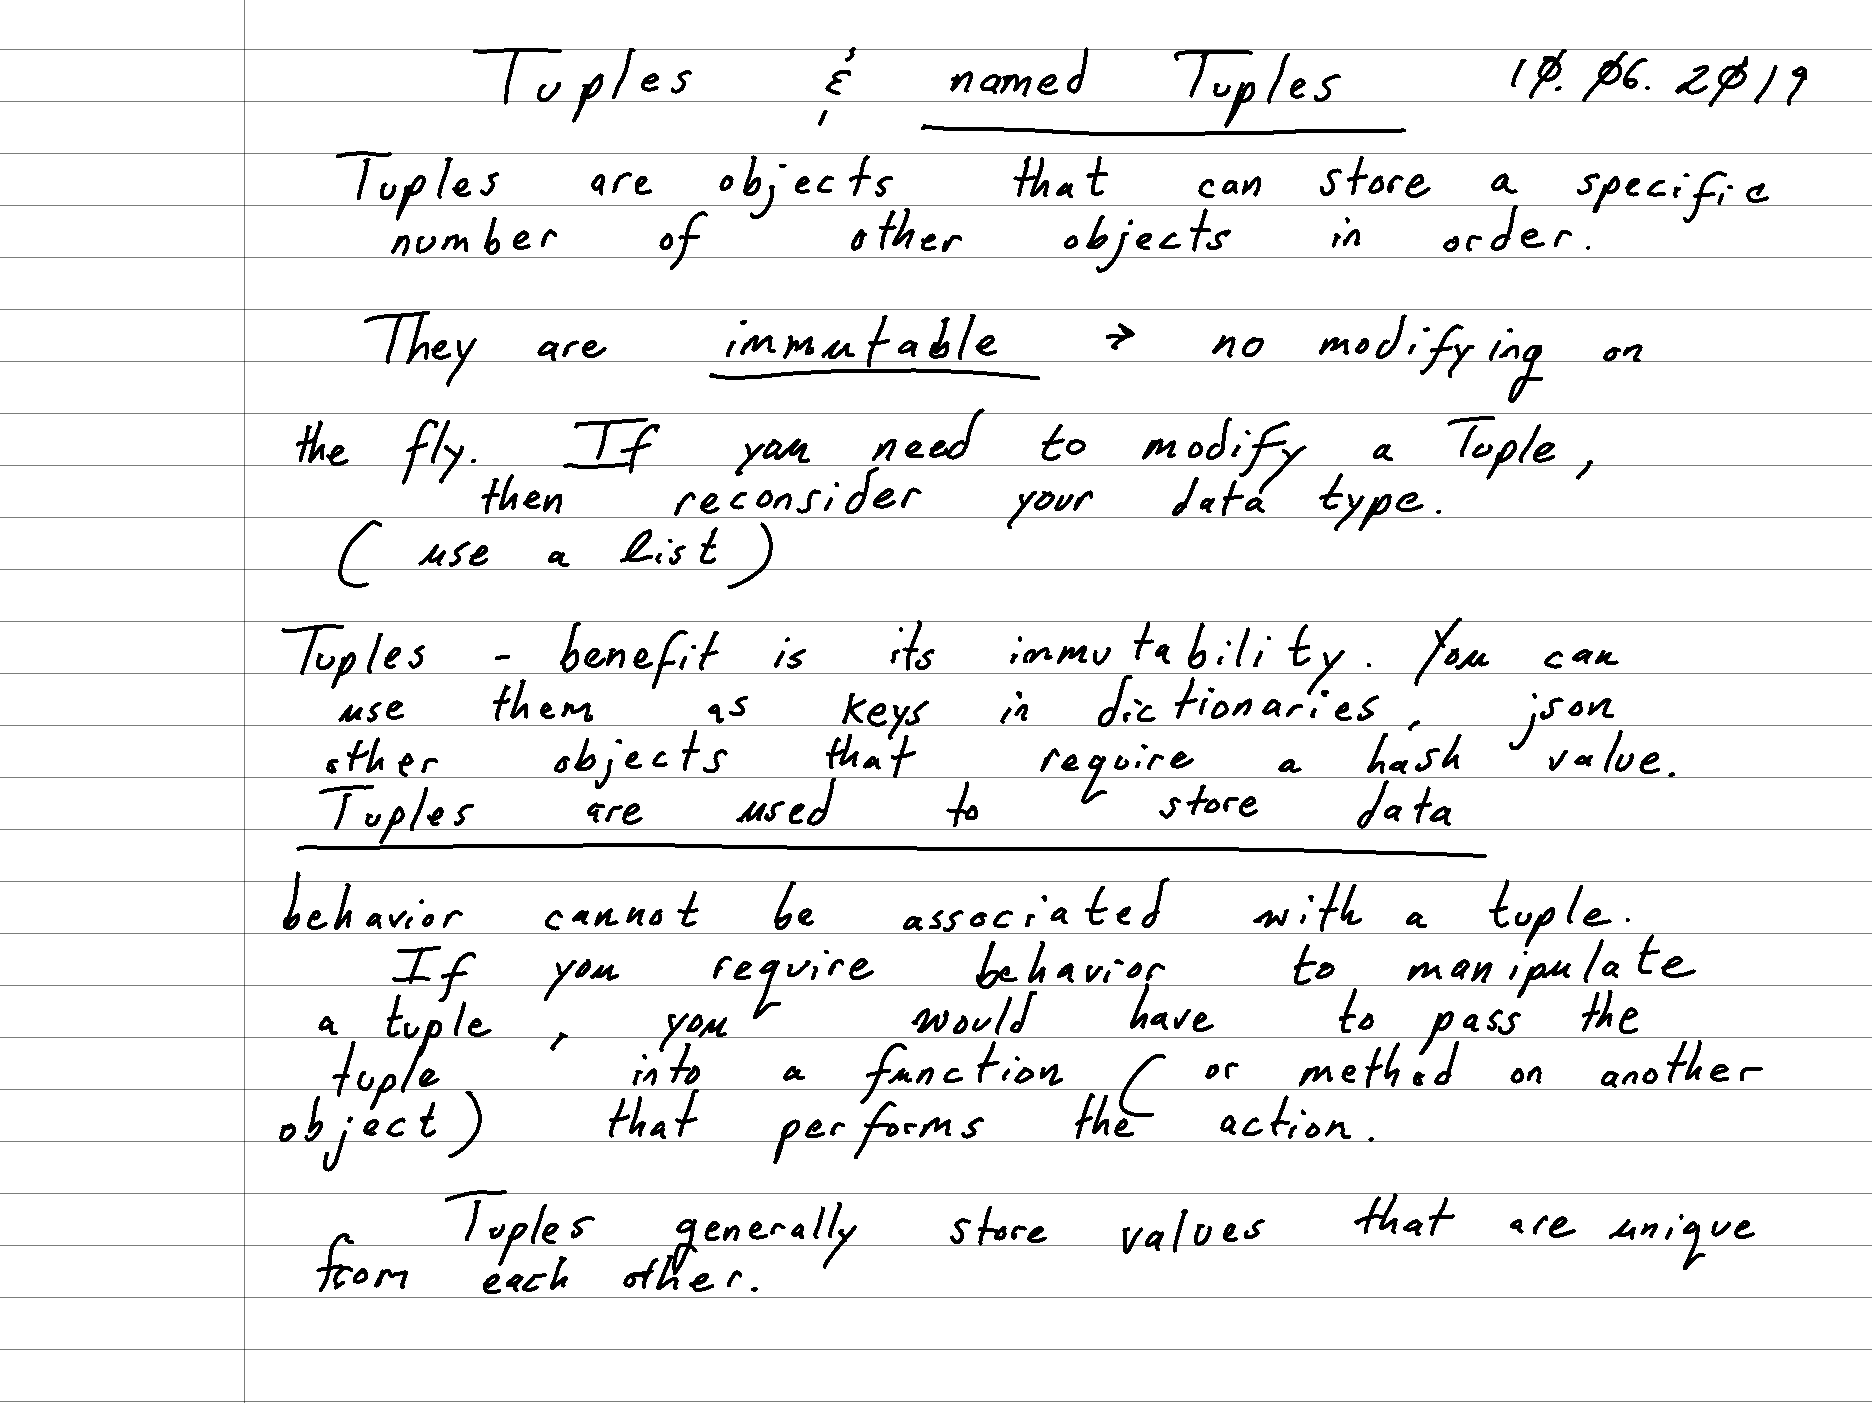 Tuples & named Tuples 10.06.2019
Tuples are objects that can store a specific
number of other objects in order.
They are immutable → no modifying on
the fly. If you need to modify a Tuple,
then reconsider your data type.
( use a list )
Tuples - benefit is its immutability. You can
use them as keys in dictionaries, json
other objects that require a hash value.
Tuples are used to store data
behavior cannot be associated with a tuple.
If you require behavior to manipulate
a tuple, you would have to pass the
tuple into a function ( or method on another
object) that performs the action.
Tuples generally store values that are unique
from each other.